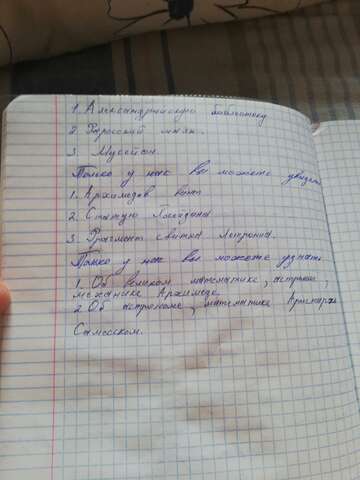 1. Александрийскую библиотеку
2. Фаросский маяк.
3. Мусейон.
Только у нас вы можете увидеть
1. Архимедов винт
2. Статую Посейдона
3. Фрагмент свитка
Только у нас вы можете узнать
1. Об великом математике, астрономе,
механике Архимеде.
2. Об астрономе, математике Аристархе
Самосском.